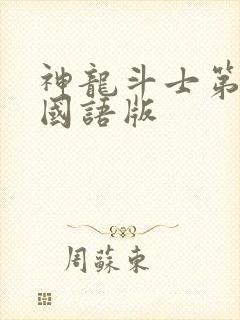 神龍斗士第
國語版
周蘇東